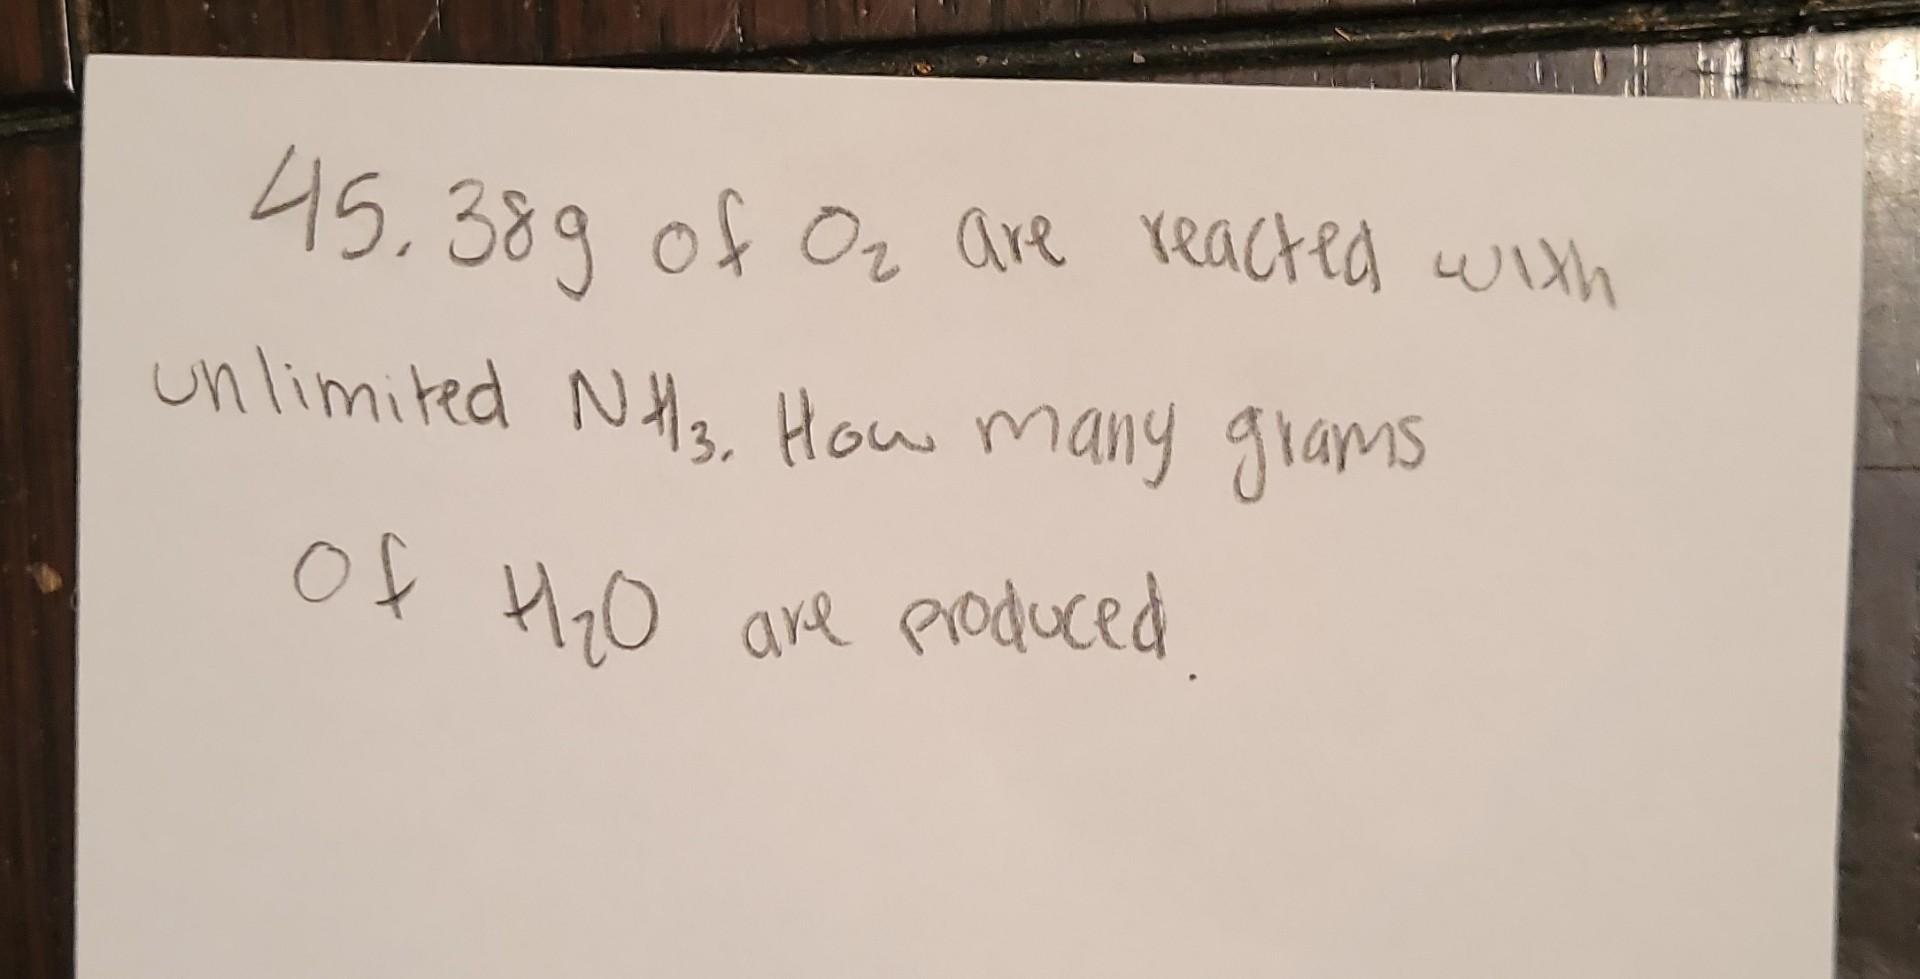 45.38g of O₂ are reacted with
unlimited NH₃. How many grams
of H₂O are produced.